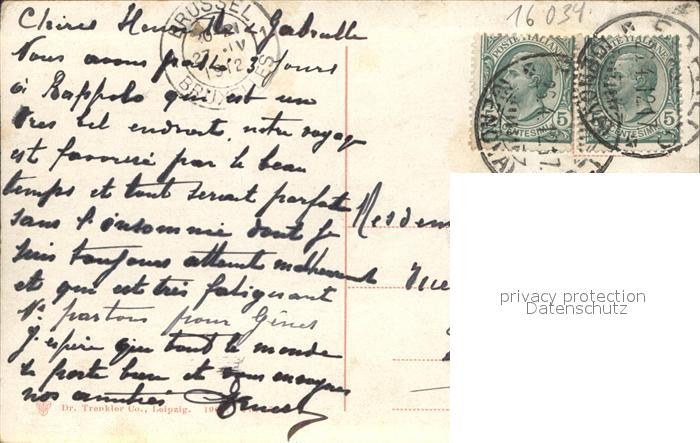 16034.
Chères Henriette Gabrielle
BRUSSEL
27 IV
1912
POSTE ITALIANE
POSTE ITALIANE
5 CENTESIMI 5
CENTESIMI 5
Nous avons passé 3 jours
à Rappolo qui est un
très bel endroit, notre voyage
est favorisé par le beau
temps et tout serait parfait
sans l'insomnie dont je
suis toujours atteint
et qui est très fatiguant
Ns partons pour Gênes
J'espère que tout le monde
se porte bien et vous envoyons
nos amitiés
Mesdem
privacy protection
Datenschutz
Dr. Trenkler Co., Leipzig.